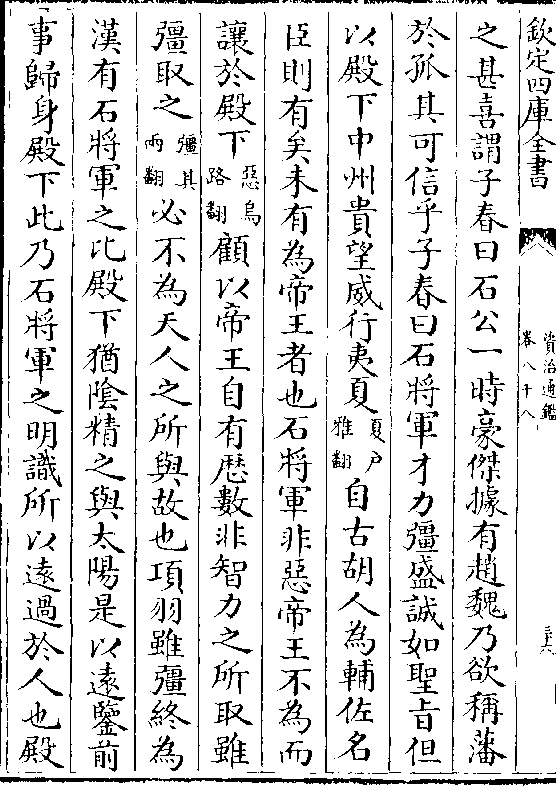 欽定四庫全書
資治通鑑
卷八十八
三六
之甚喜謂子春曰石公一時豪傑據有趙魏乃欲稱藩
於孤其可信乎子春曰石將軍才力彊盛誠如聖旨但
以殿下中州貴望威行夷夏夏戶雅翻自古胡人為輔佐名
臣則有矣未有為帝王者也石將軍非惡帝王不為而
讓於殿下惡烏路翻顧以帝王自有厯數非智力之所取雖
彊取之彊其兩翻必不為天人之所與故也項羽雖彊終為
漢有石將軍之比殿下猶陰精之與太陽是以遠鑒前
事歸身殿下此乃石將軍之明識所以遠過於人也殿